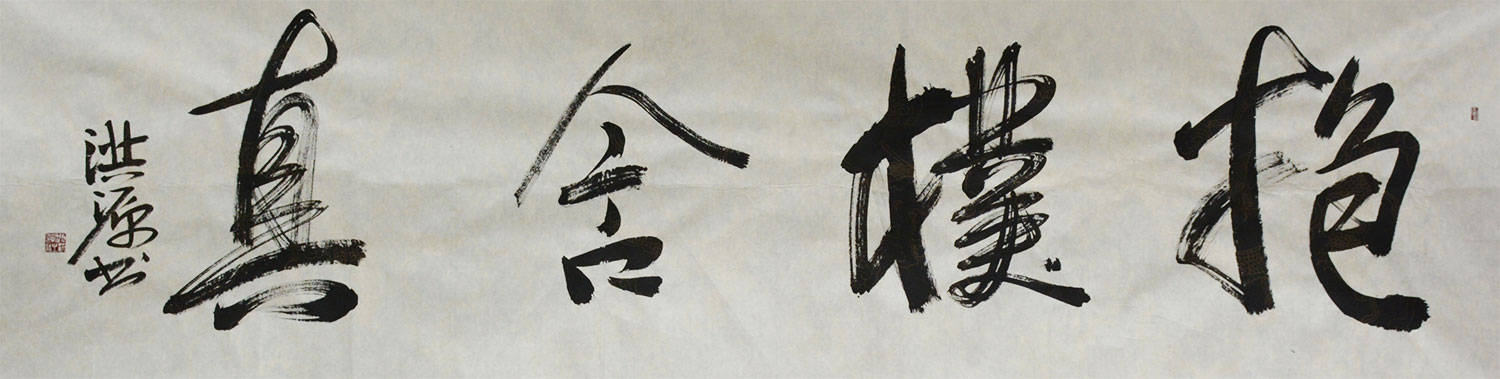 抱樸含真
洪源书